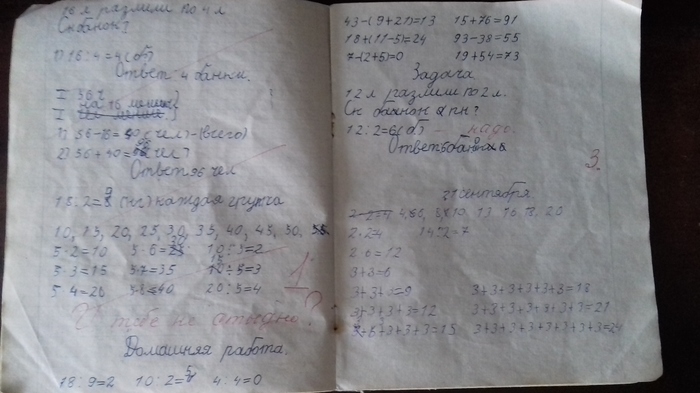 16 л разлили по 4 л
Ск банок?
1) 16 : 4 = 4 (б)
Ответ 4 банки.
I 56 ч
на 16 меньше
1) 56 - 16 = 40 (чел) - (всего)
2) 56 + 40 = 96 чел
Ответ 96 чел
18 : 2 = 9 (ч) каждая група
10, 15, 20, 25, 30, 35, 40, 45, 50,
5 · 2 = 10 5 · 6 = 30 10 : 5 = 2
5 · 3 = 15 5·7 = 35 15 : 5 = 3
5 · 4 = 20 5·8 = 40 20 : 5 = 4
1
тебе не стыдно?
Домашняя работа.
18 : 9 = 2 10 : 2 = 5 4 : 4 = 0
43 - (9 + 21) = 13 15 + 76 = 91
18 + (11 - 5) = 24 93 - 38 = 55
7 - (2 + 5) = 0 19 + 54 = 73
Задача
12 л разлили по 2 л.
Ск банок
12 : 2 = 6 (б) - надо.
Ответ 6
3.
21 сентября
10 13 16 18 20
2 · 2 = 4 14 : 2 = 7
2 · 6 = 12
3 + 3 = 6
3 + 3 + 3 = 9 3 + 3 + 3 + 3 + 3 + 3 = 18
3 + 3 + 3 + 3 = 12 3 + 3 + 3 + 3 + 3 + 3 + 3 = 21
3 + 3 + 3 + 3 + 3 = 15 3 + 3 + 3 + 3 + 3 + 3 + 3 + 3 = 24